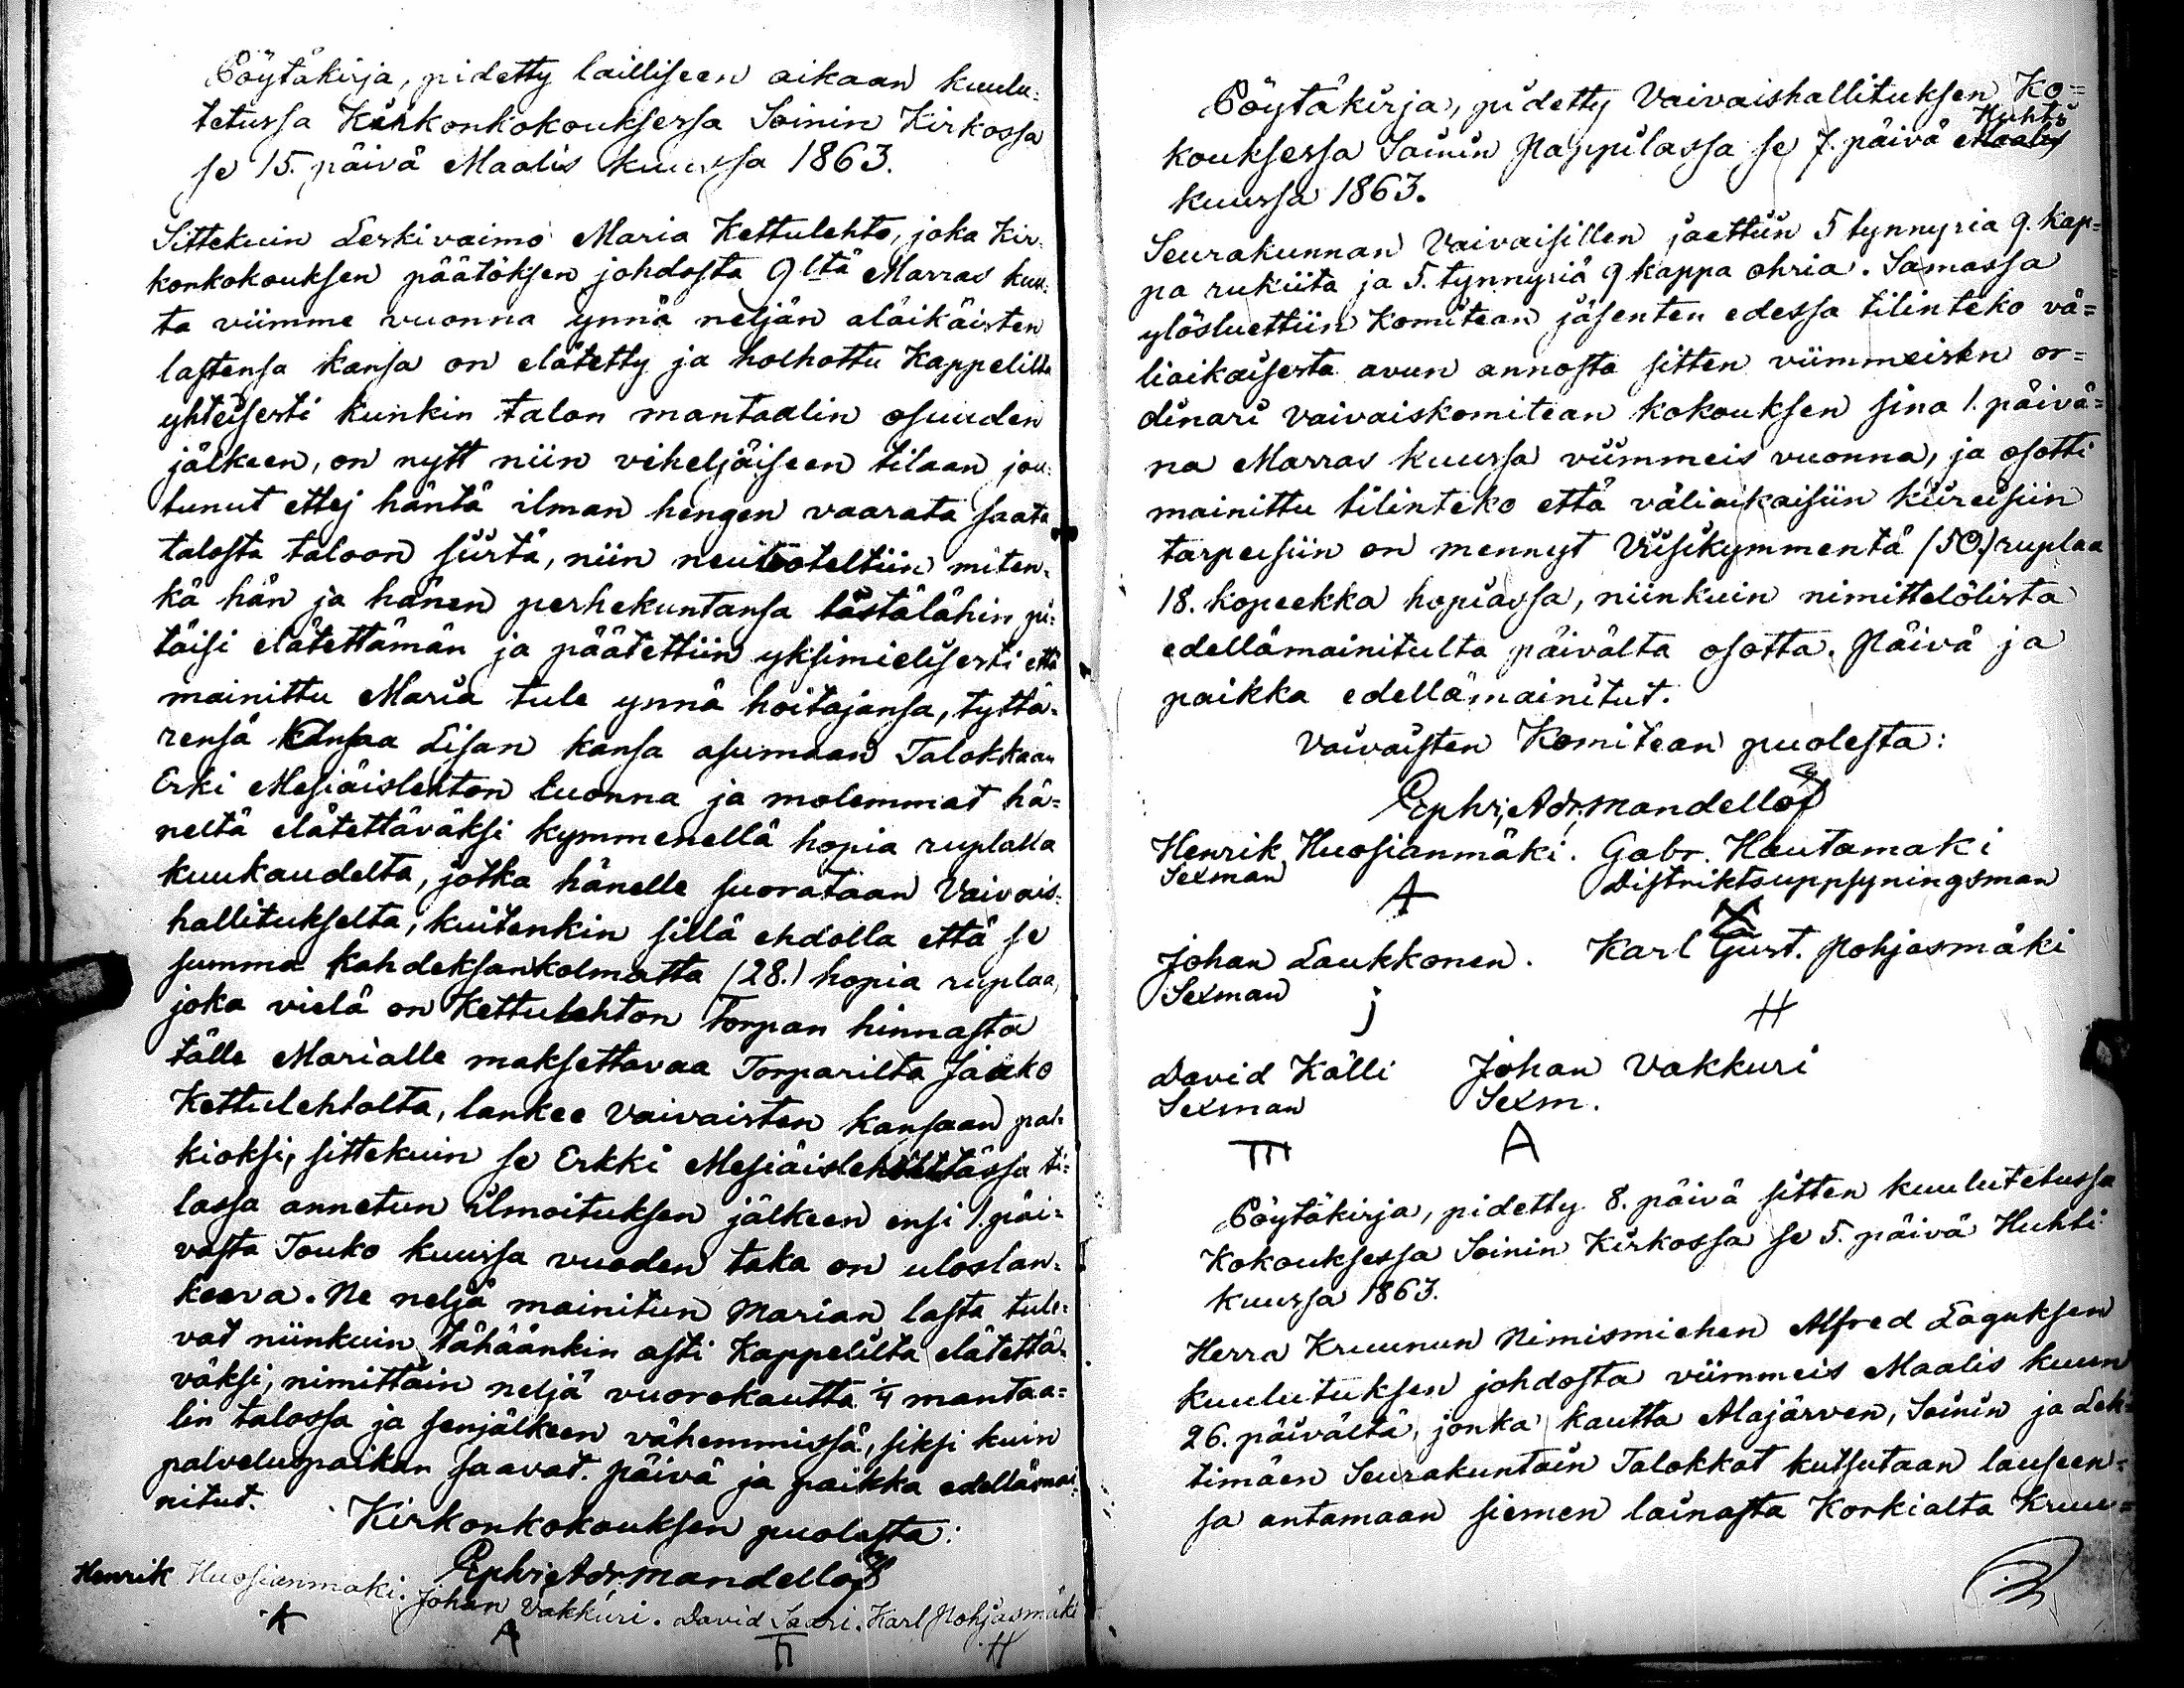 Pöytäkirja, pidetty lailliseen aikaan kuulu=
tetussa Kirkonkokouksessa Soinin Kirkossa
se 15. päivä Maalis kuussa 1863.
Sittekuin Leskivaimo Maria Kettulehto, joka Kir=
konkokouksen päätöksen johdosta 9ltä Marras kuu=
ta viimme vuonna ynnä neljän aläikäisten
lastensa kansa on elätetty ja holhottu Kappelilta
yhteisesti kunkin talon mantaalin osuuden
jälkeen, on nytt niin viheljäiseen tilaan jou=
tunut ettej häntä ilman hengen vaarata saata
talosta taloon siirtä, niin neuvoteltiin miten=
kä hän ja hänen perhekuntansa tästälähin pi=
täisi elätettämän ja päätettiin yksimielisesti että
mainittu Maria tule ynnä hoitajansa, tyttä=
rensä Lisan kansa asumaan Talokkaan
Erki Mesiäislehton luonna ja molemmat hä=
neltä elätettäväksi kymmenellä hopia ruplalla
kuukaudelta, jotka hänelle suorataan Vaivais=
hallitukselta, kuitenkin sillä ehdolla että se
summa kahdeksankolmatta (28.) hopia ruplaa,
joka vielä on Kettulehton Torpan hinnasta
tälle Marialle maksettavaa Torparilta Jaako
Kettulehtolta, lankee Vaivaisten kansaan pal=
kioksi, sittekuin se Erkki Mesiäislehtolta tässä ti=
lassa annetun ilmoituksen jälkeen ensi 1. päi=
västa Touko kuussa vuoden taka on uloslan=
keeva. Ne neljä mainitun Marian lasta tule=
vat niinkuin tähäänkin asti Kappelilta elätettä=
väksi, nimittäin neljä vuorokautta ¼ mantaa=
lin talossa ja senjälkeen vähemmissä, siksi kuin
palveluspaikan saavat. Päivä ja paikka edellämai=
nitut.
Kirkonkokouksen puolesta:
Ephr. Adr. Mandellöf
Henrik Huosianmäki. Johan Vakkuri. David Saari. Karl Pohjasmäki
A A m H
Pöytäkirja, pidetty Vaivaishallituksen Ko=
Huhti
kouksessa Soinin Pappilassa se 7. päivä Maalis
kuussa 1863.
Seurakunnan Vaivaisillen jaettiin 5 tynnyria 9. kap=
pa rukiita ja 5. tynnyriä 9 kappa ohria. Samassa
ylösluettiin Komitean jäsenten edessa tilinteko vä=
liaikaisesta avun annosta sitten viimmeisen or=
dinari vaivaiskomitean kokouksen sina 1. päivä=
na Marras kuussa viimmeis vuonna, ja osotti
mainittu tilinteko että väliaikaisiin kiireisiin
tarpeisiin on mennyt Viisikymmentä (50.) ruplaa
18. kopeekka hopiassa, niinkuin nimittelölista
edellämainitulta päivälta osotta. Päivä ja
paikka edellämainitut.
Vaivaisten Komitean puolesta:
Ephr. Adr. Mandellöf
Henrik Huosianmäki. Gabr. Hautamaki
Sexman Distriktsuppsyningsman
A
Johan Laukkonen. Karl Gust. Pohjasmäki
Sexman
J H
David Källi Johan Vakkuri
Sexman Sexm.
m A
Pöytäkirja, pidetty 8. päivä sitten kuulutetussa
Kokouksessa Soinin Kirkossa se 5. päivä Huhti
kuussa 1863.
Herra Kruunun Nimismiehen Alfred Laguksen
kuulutuksen johdosta viimmeis Maalis kuun
26. päivältä, jonka kautta Alajärven, Soinin ja Leh=
timäen Seurakuntain Talokkat kutsutaan lauseen=
sa antamaan siemen lainasta Korkialta Kruu=